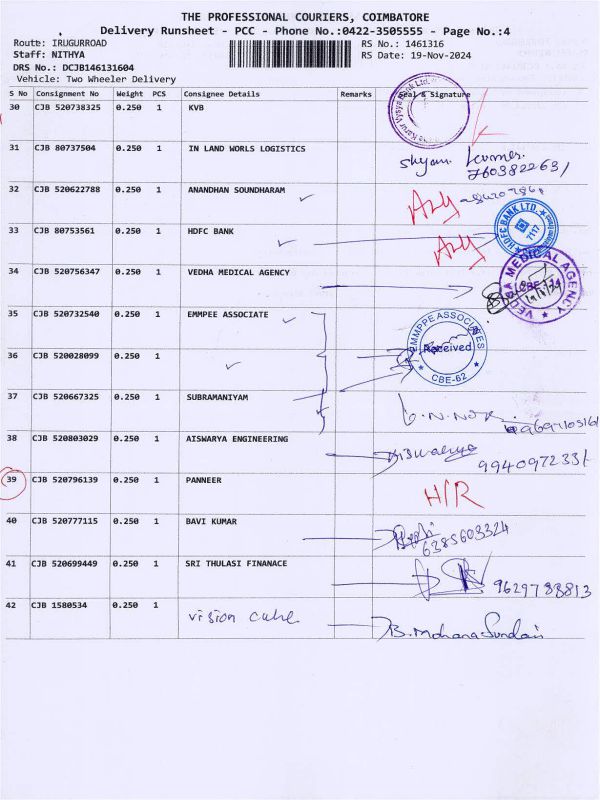 THE PROFESSIONAL COURIERS, COIMBATORE
Delivery Runsheet - PCC - Phone No.:0422-3505555 - Page No.:4
Route: IRUGURROAD RS No.: 1461316
Staff: NITHYA RS Date: 19-Nov-2024
DRS No.: DCJB146131604
Vehicle: Two Wheeler Delivery
S No Consignment No Weight PCS Consignee Details Remarks Seal & Signature
30 CJB 520738325 0.250 1 KVB
31 CJB 80737504 0.250 1 IN LAND WORLS LOGISTICS
Shyam Kumar
7603822631
32 CJB 520622788 0.250 1 ANANDHAN SOUNDHARAM
33 CJB 80753561 0.250 1 HDFC BANK
HDFC BANK LTD.
7117
34 CJB 520756347 0.250 1 VEDHA MEDICAL AGENCY
MEDICAL AGENCY
35 CJB 520732540 0.250 1 EMMPEE ASSOCIATE
EMMPPE ASSOCIATES
Received
CBE-62
36 CJB 520028099 0.250 1
37 CJB 520667325 0.250 1 SUBRAMANIYAM
38 CJB 520803029 0.250 1 AISWARYA ENGINEERING
Aiswarya
9940972331
39 CJB 520796139 0.250 1 PANNEER H/R
40 CJB 520777115 0.250 1 BAVI KUMAR
6385603324
41 CJB 520699449 0.250 1 SRI THULASI FINANACE
9629788813
42 CJB 1580534 0.250 1 vision cube B. Mohana Sundari